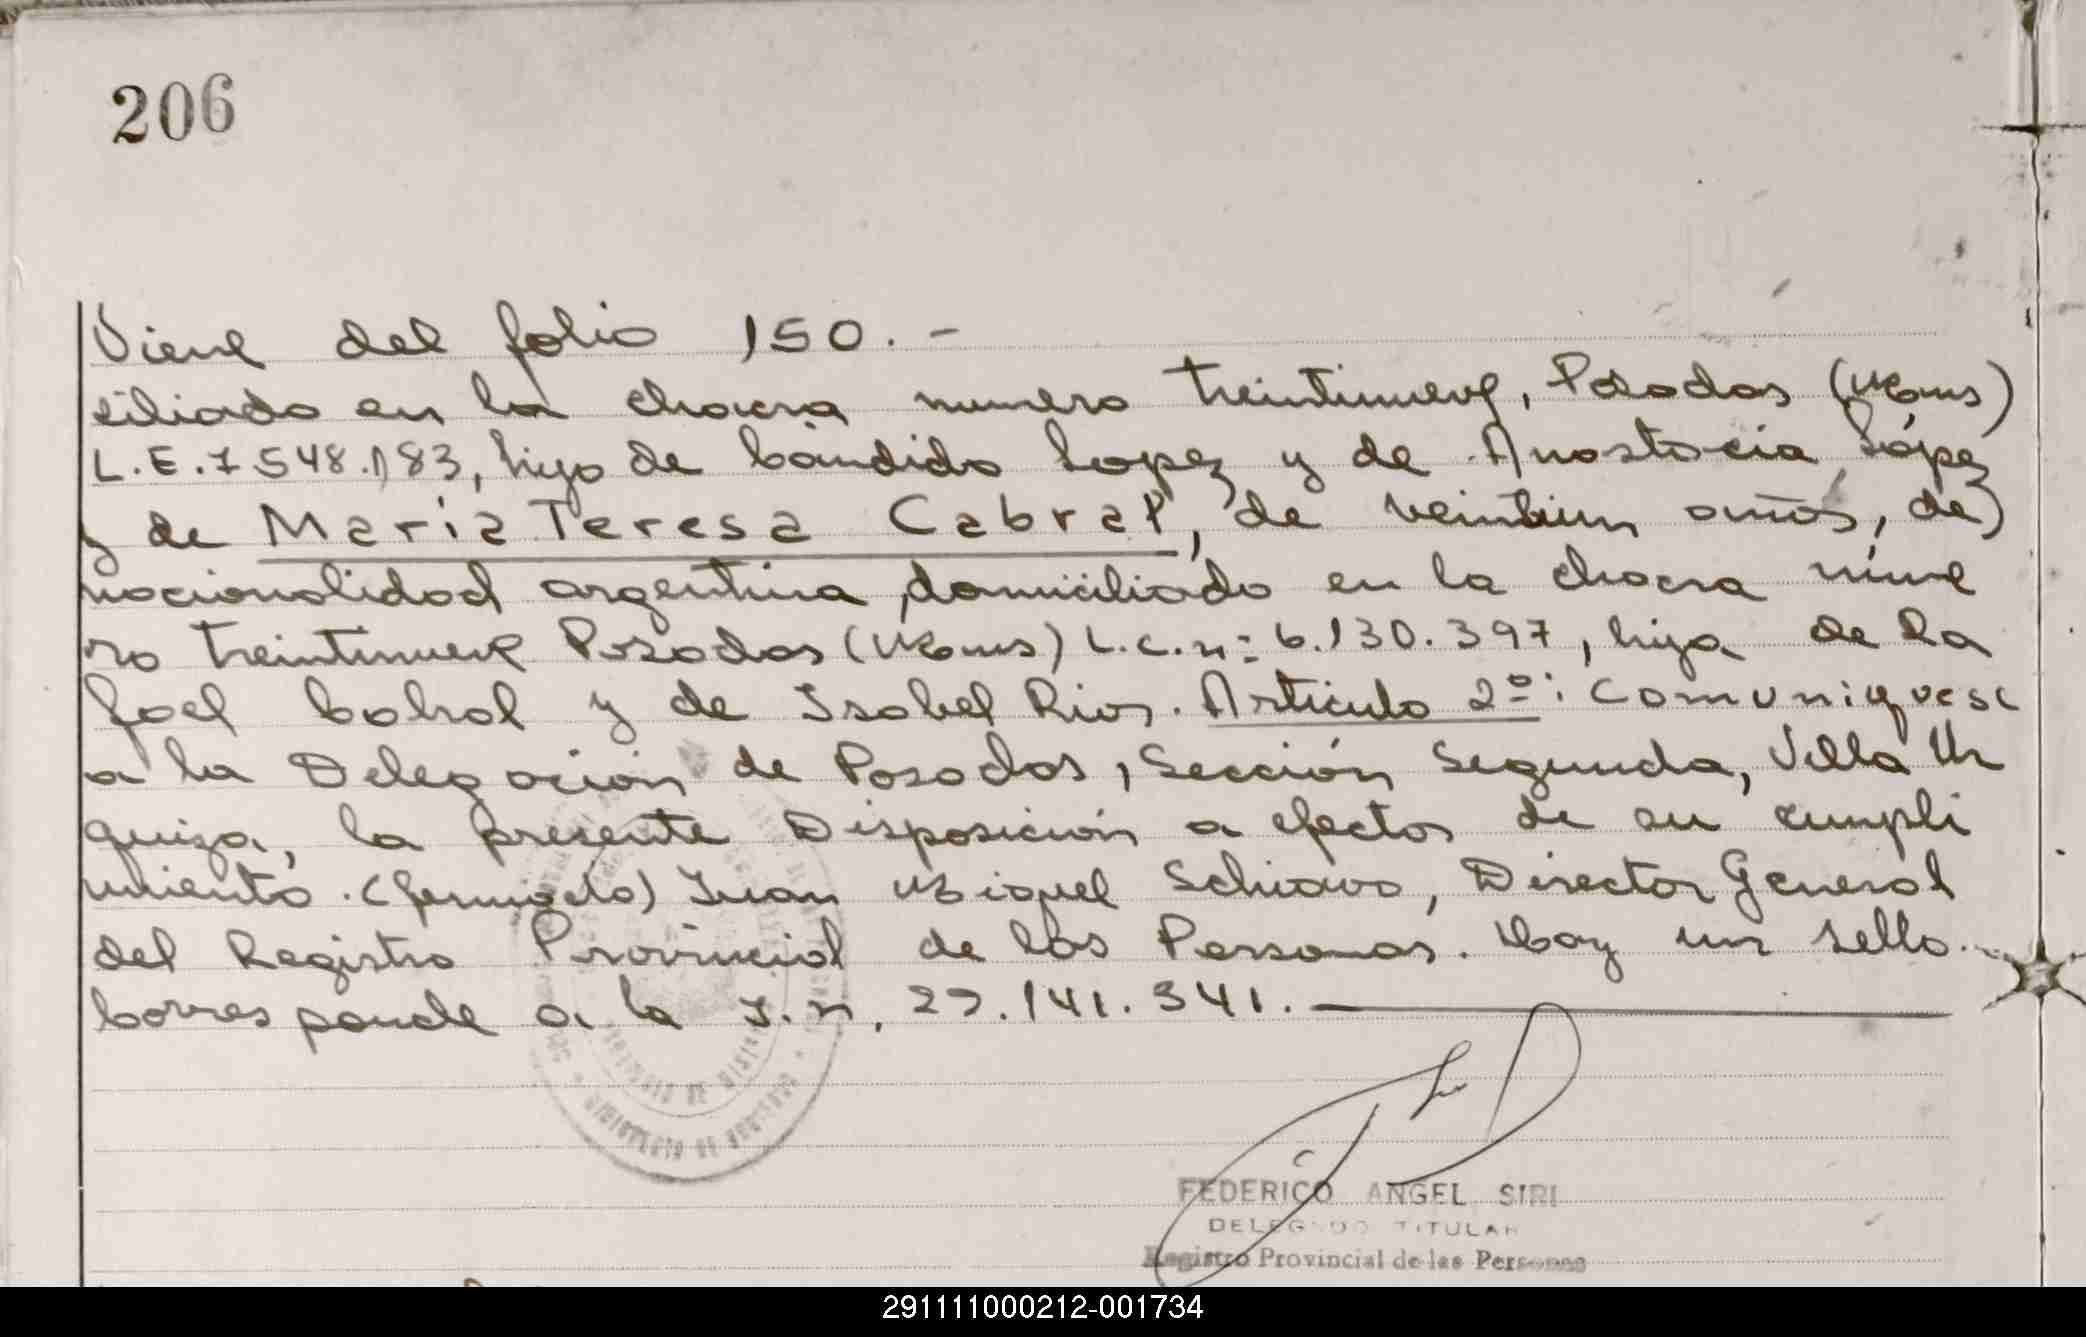 206
Viene del folio 150.-
ciliado en la chacra numero treintinueve, Posadas (Mnes)
L.E.7.548.183, hijo de Cándido Lopez y de Anastacia López
y de María Teresa Cabral, de veintiun años, de
nacionalidad argentina, domiciliado en la chacra núme
ro treintinueve Posadas (Mnes) L.C.nº 6.130.397, hija de Ra
fael Cabral y de Isabel Rios. Artículo 2º: Comuniquese
a la Delegación de Posadas, Sección Segunda, Villa Ur
quiza, la presente Disposición a efectos de su cumpli
miento. (firmado) Juan Miguel Schiavo, Director General
del Registro Provincial de las Personas. Hay un sello.
Corresponde a la I.n. 141.341.
FEDERICO ANGEL SIRI
DELEGADO TITULAR
Registro Provincial de las Personas
291111000212-001734